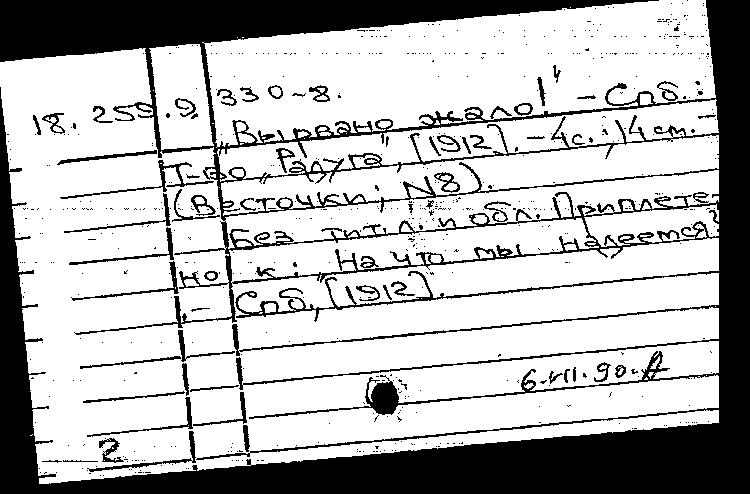 18.259.9.330-8.
„Вырвано жало!" – Спб.:
Т-во „Радуга", [1912]. – 4 с.; 14 см. –
(Весточки; N8).
Без тит. л. и обл. Приплете-
но к: „На что мы надеемся?
. – Спб., [1912].
6.VII.90.
2